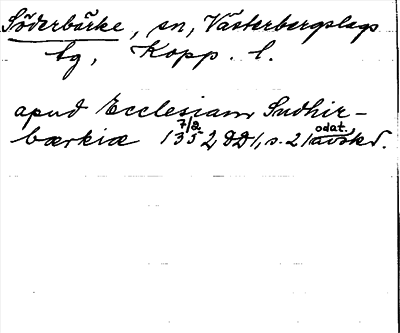 Söderbärke, sn, Västerbergslags
tg, Kopp. l.
apud Ecclesiam Sudhir-
bærkiæ 7/2 1352 DD1, s. 21 odat. avskr.